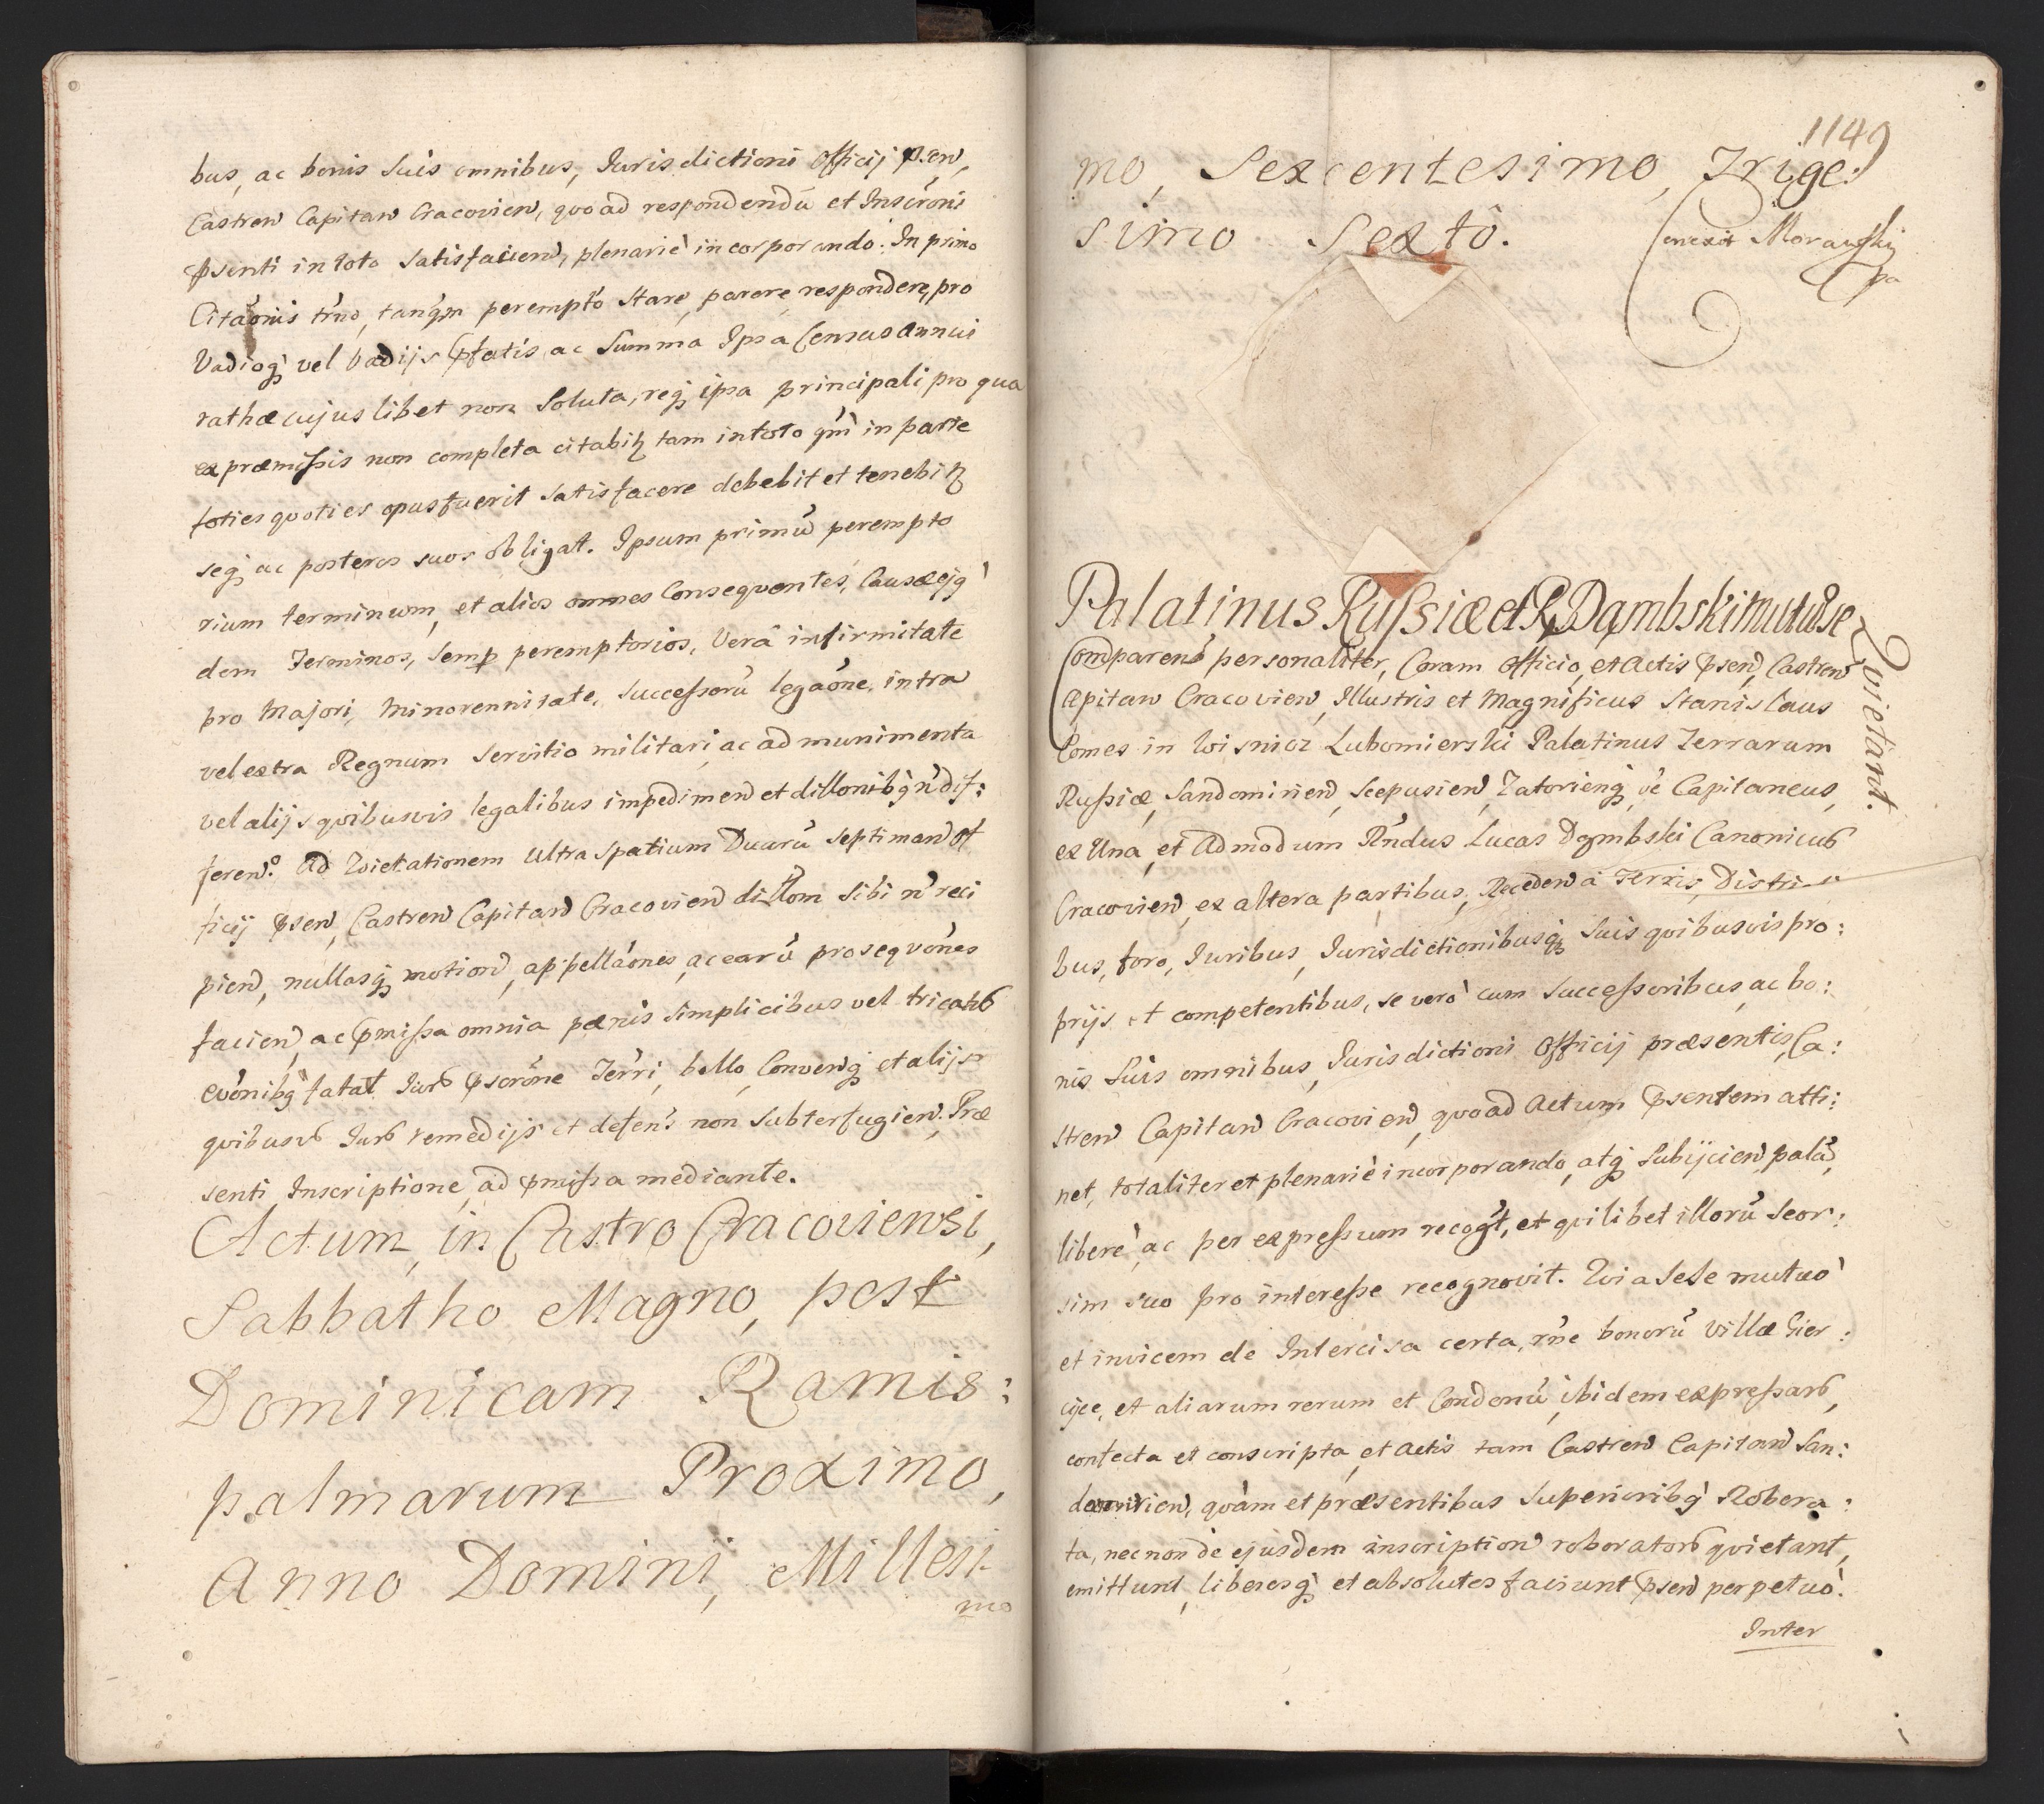 bus, ac bonis Suis omnibus, Jurisdictioni Officij psen,
Castren Capitan Cracovien, quoad respondendũ et Inscrõni
psenti in toto Satisfacien, plenariè incorporando. In primo
Citãonis trño, tanq̃m perempto stare, parere, respondere, pro
Vadioq; vel Vadijs pfatis, ac Summa Ipsa Census Annui
rathæ cujuslibet non Soluta, req; ipsa principali pro qua
ex præmissis non completa citabitr tam in toto qm̃ in parte
toties quoties opus fuerit Satisfacere debebit et tenebitr
seq; ac posteros suos obligat. Ipsum primũ perempto
rium terminum, et alios omnes Consequentes, Causæ ejq
dem Terminos, semp peremptorios, Verâ infirmitate
pro Majori, Minorennitate, Successorũ legãone, intra
vel extra Regnum Servitio militari, ac ad munimenta
vel alijs quibusvis legalibus impedimen et dillonibq ñ dif:
feren. Ad Quietationem Ultra Spatium Duarũ Septiman Of
ficij psen, Castren Capitan Cracovien dillom Sibi ñ reci
pien, nullasq; motion, appellãones, ac earũ prosequões
facien, ac pmissa omnia pœnis simplicibus vel tricatis
quibusvis Juris remedijs et defens non Subterfugien. Præ
senti Inscriptione ad pmissa mediante.
Actum in Castro Cracoviensi,
Sabbatho Magno, post
Dominicam Ramis:
palmarum Proximo,
Anno Domini, Millesi-
mo
1149
mo, Sexcentesimo, Trige:
simo Sextô.
Correxit Morawski
Palatinus Russiæ et R. Dąmbski mutuò se
Quietant.
Comparens personaliter, Coram Officio, et Actis psen, Castren
Capitan Cracovien, Illustris et Magnificus Stanislaus
Comes in Wisnicz Lubomierski Palatinus Terrarum
Russiæ, Sandomirien, Scepusien, Zatorienq; &c Capitaneus,
ex Una, et Admodum Rñdus Lucas Dąmbski Canonicus
Cracovien, ex altera partibus, Receden à Terris, Distri-
bus, foro, Juribus, Jurisdictionibusq; Suis quibusvis pro:
prijs et competentibus, se verò cum Successoribus, ac bo:
nis Suis omnibus, Jurisdictioni Officij præsentis, Ca:
stren Capitan Cracovien, quoad Actum psentem atti:
net, totaliter et plenariè incorporando, atq; Subijcien, palã,
liberè, ac per expressum recogt, et quilibet illorũ Seor:
sim suo pro interesse recognovit. Quia Sese mutuò
et invicem de Intercisa certa, rñe bonorũ Villæ Gier:
cyce, et aliarum rerum et Condonũ, ibidem expressars,
confecta et conscripta, et Actis tam Castren Capitan San:
domirien, quàm et præsentibus Superioribq Robora:
ta, necnon de ejusdem inscription roborators quietant,
emittunt, liberosq; et absolutos faciunt psen perpetuò.
Inter